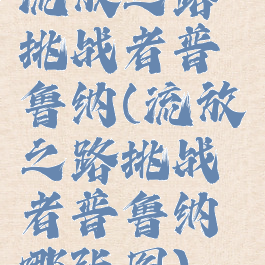 流放之路
挑战者普
鲁纳(流放
之路挑战
者普鲁纳
哪张图)